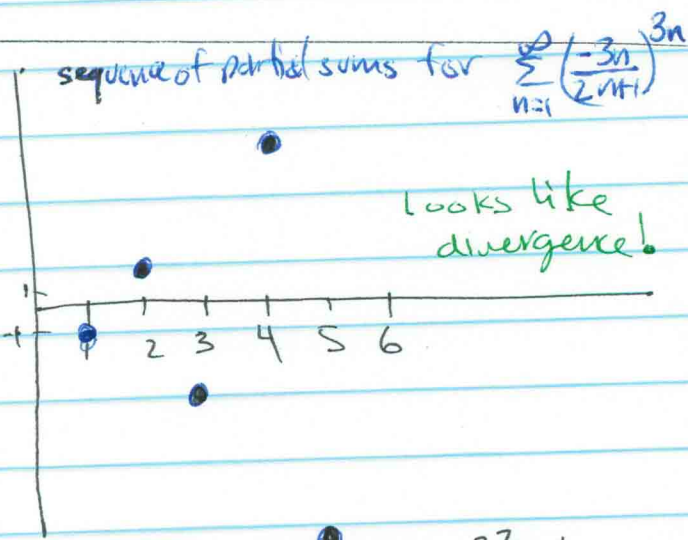 sequence of partial sums for ∞ Σ n=1 (-3n / 2n+1)^3n
looks like
divergence!
1
-1
1 2 3 4 5 6